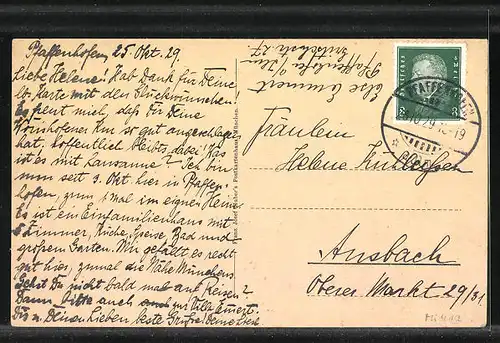 Pfaffenhofen, 25. Okt. 29.
Liebe Helene! Hab Dank für Deine
lb. Karte mit den Glückwünschen!
Es freut mich, daß Dir Deine
Kur so gut angeschlagen
hat. Hoffentlich bleibts dabei! Was
ist es mit Lausanne? Ich bin
nun seit 9. Okt. hier in Pfaffen-
hofen, zum 1. mal im eignen Heim.
Es ist ein Einfamilienhaus mit
Zimmer, Küche, Speise, Bad und
großem Garten. Mir gefällt es recht
gut hier, zumal die Nähe Münchens.
Gehst Du nicht bald mal auf Reisen?
Dann bitte auch ins Villa Emert.
Dir u. Deinen Lieben beste Grüße! Deine
Else Emmert
Pfaffenhofen a/Ilm
27.
Deutsches Reich
PFAFFENHOFEN
Fräulein
Helene
Ansbach
Oberer Markt 29/31